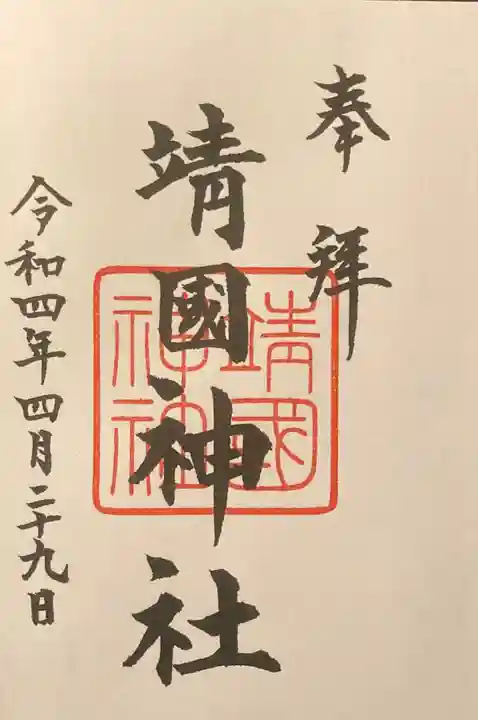 奉拜
靖國神社
靖國
神社
令和四年四月二十九日